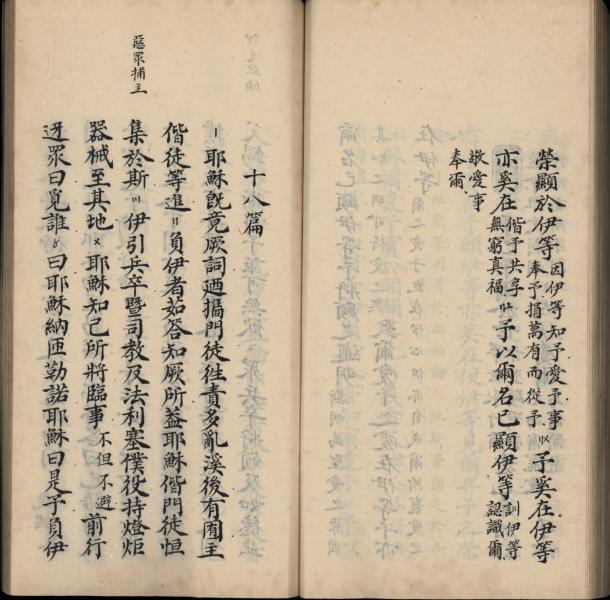 榮顯於伊等因伊等知予愛予事奉予捐萬有而從予予奚在伊等
亦奚在偕予共享無窮真福予以爾名已顯伊等訓伊等認識爾
敬愛事奉爾
惡眾捕主
十八篇
〡耶穌既竟厥詞迺攜門徒徃責多亂溪後有囿主
偕徒等進〢負伊者茹答知厥所葢耶穌偕門徒恒
集於斯〣伊引兵卒暨司教及法利塞僕役持燈炬
器械至其地〤耶穌知己所將臨事不但不避前行
迓眾曰覓誰〥曰耶穌納匝勒諾耶穌曰是予負伊